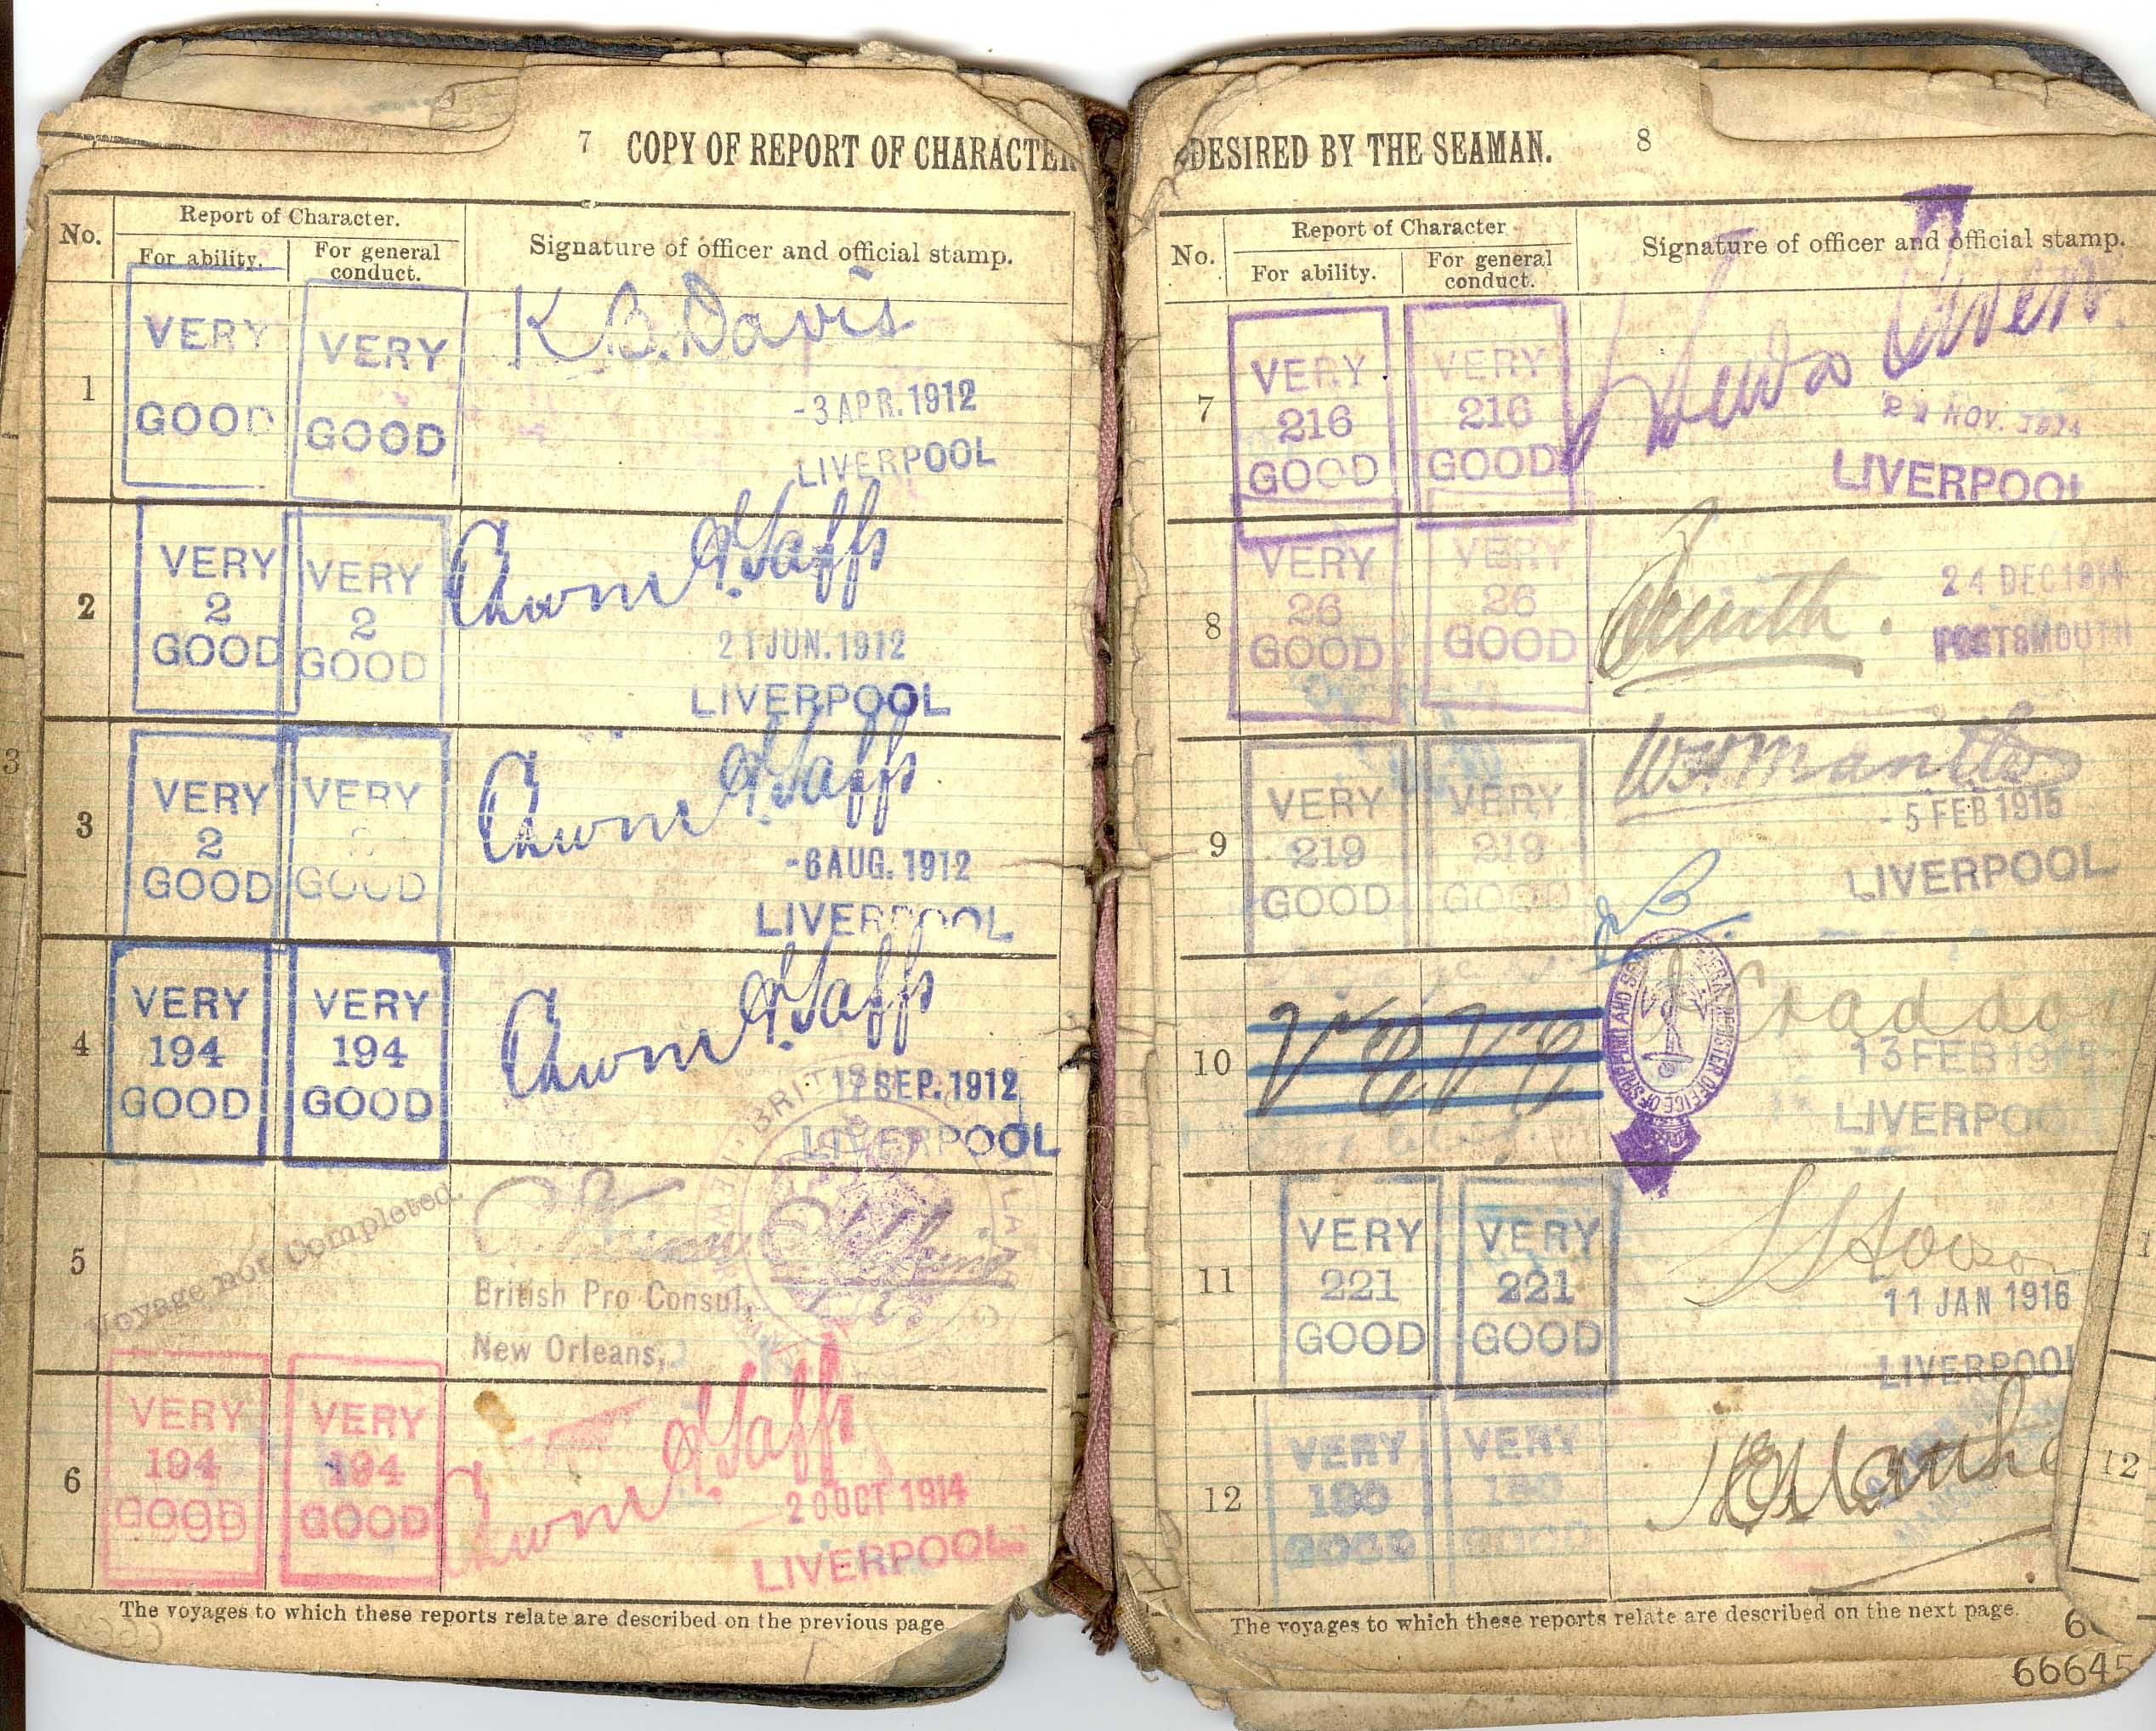 7 COPY OF REPORT OF CHARACTER
No.
Report of Character.
For ability.
For general
conduct.
Signature of officer and official stamp.
1
VERY
GOOD
VERY
GOOD
K. B. Davis
-3 APR. 1912
LIVERPOOL
2
VERY
2
GOOD
VERY
2
GOOD
21 JUN. 1912
LIVERPOOL
3
VERY
2
GOOD
VERY
2
GOOD
-6 AUG. 1912
LIVERPOOL
4
VERY
194
GOOD
VERY
194
GOOD
17 SEP. 1912
LIVERPOOL
5
Voyage not Completed.
British Pro Consul,
New Orleans,
6
VERY
194
GOOD
VERY
194
GOOD
20 OCT 1914
LIVERPOOL
The voyages to which these reports relate are described on the previous page
DESIRED BY THE SEAMAN. 8
No.
Report of Character
For ability.
For general
conduct.
Signature of officer and official stamp.
7
VERY
216
GOOD
VERY
216
GOOD
NOV. 1914
LIVERPOOL
8
VERY
26
GOOD
VERY
26
GOOD
24 DEC 1914
PORTSMOUTH
9
VERY
219
GOOD
VERY
219
GOOD
-5 FEB 1915
LIVERPOOL
10
13 FEB 1915
LIVERPOO
11
VERY
221
GOOD
VERY
221
GOOD
11 JAN 1916
LIVERPOOL
12
VERY
180
GOOD
VERY
180
GOOD
The voyages to which these reports relate are described on the next page.
66645
3
12